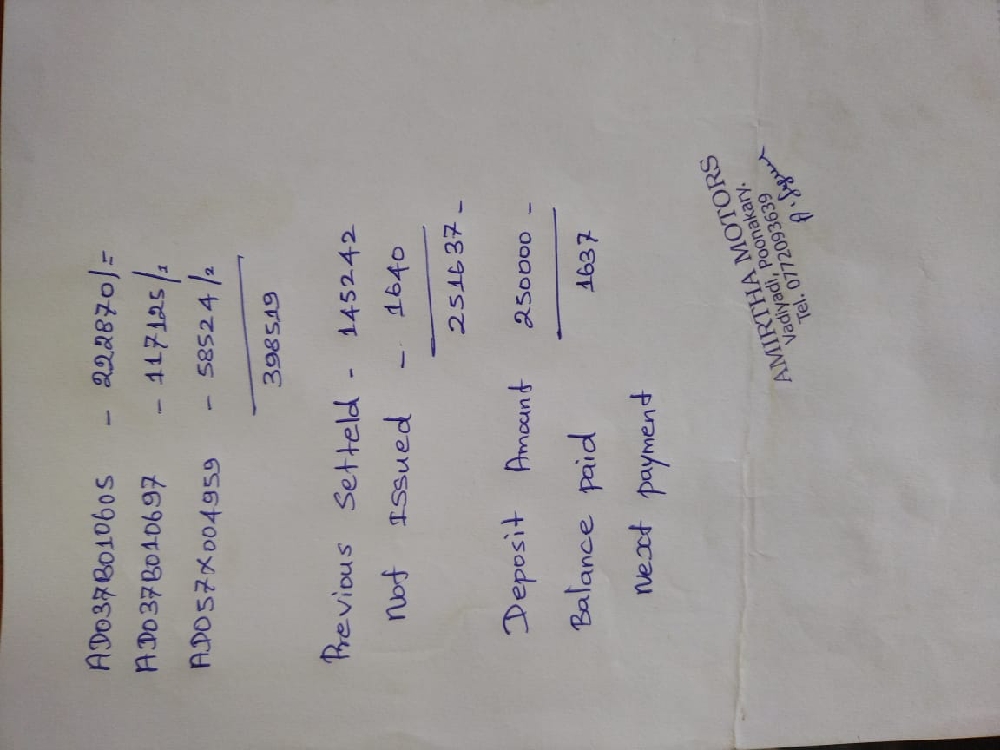 AD037B010605 - 222870/=
AD037B010697 - 117125/1
AD057X004959 - 58524/2
398519
Previous Setteld - 145242
Not Issued - 1640
251637-
Deposit Amount 250000-
Balance paid 1637
Next payment
AMIRTHA MOTORS
Vadiyadi, Poonakary.
Tel. 0772093639